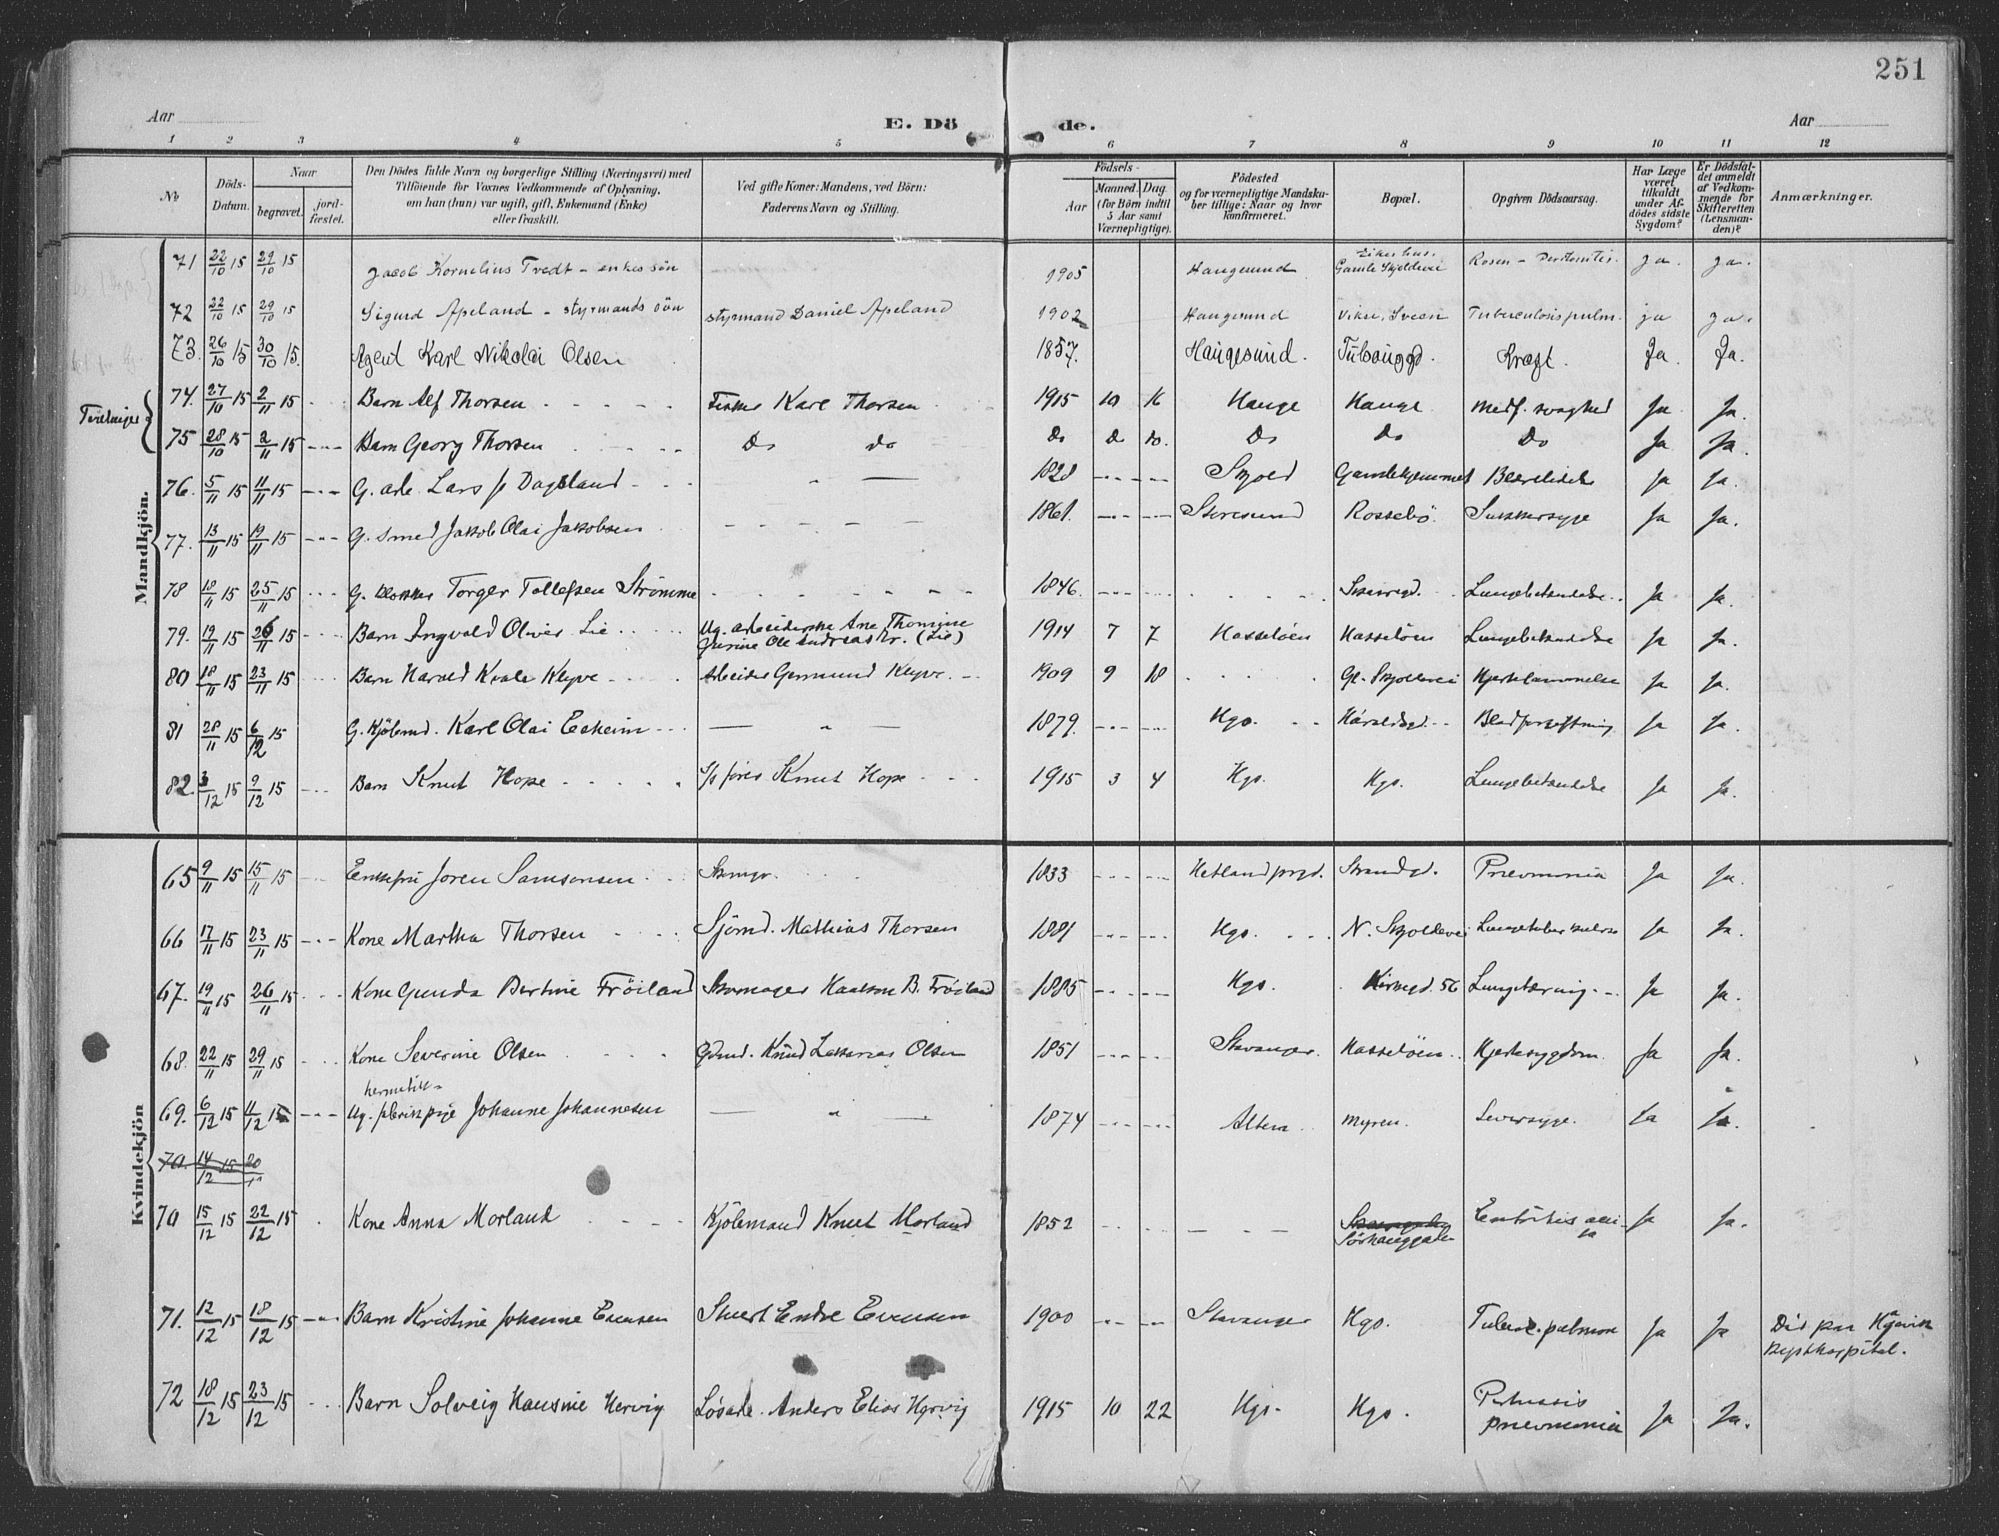 251
Aar
E. Döde.
Aar
1 2 3 4 5 6 7 8 9 10 11 12
No
Döds-Datum.
Naar
begravet.
jord-fæstet.
Den Dödes fulde Navn og borgerlige Stilling (Næringsvei) med
Tilföiende for Voxnes Vedkommende af Oplysning,
om han (hun) var ugift, gift, Enkemand (Enke)
eller fraskilt.
Ved gifte Koner: Mandens, ved Börn:
Faderens Navn og Stilling.
Födsels-
Aar
Maaned. Dag
(for Börn indtil
5 Aar samt
Værnepligtige).
Födested
og for værnepligtige Mandska-
ber tillige: Naar og hvor
konfirmeret.
Bopæl.
Opgiven Dödsaarsag.
Har Læge
været
tilkaldt
under Af-
dödes sidste
Sygdom?
Er Dödsfal-
det anmeldt
af Vedkom-
mende for
Skifteretten
(Lensman-
den)?
Anmærkninger.
Mandkjön.
71 22/10 15 29/10 15 Jacob Kornelius Tvedt - enkes sön 1905 Haugesund Gamle Skjoldevei Peritonitis. ja. ja.
72 22/10 15 29/10 15 Sigurd Apeland - styrmands sön styrmand Daniel Apeland 1902 Haugesund Vikse, Sveen Tuberculosis pulm. ja ja.
73. 26/10 15 30/10 15. Agent Karl Nikolai Olsen 1857. Haugesund. Kræft. Ja. Ja.
74. 27/10 15 2/11 15 Barn Alf Thorsen Fisker Karl Thorsen 1915 10 16 Hauge Hauge Medf. svaghed Ja Ja.
75 28/10 15 2/11 15 Barn Georg Thorsen Do do Do Do do. Do Do Do Ja Ja.
76. 5/11 15 11/11 15 G. arb. Lars Dagsland " 1828 Skjold Gamlehjemmet Ja Ja.
77. 13/11 15 19/11 15 G. Smed Jakob Olai Jakobsen 1861. Storesund Rossebö. Sukkersyge Ja Ja.
78 18/11 15 25/11 15 G. Torger Tollefsen Strömme 1846. Skaregd. Lungebetændelse Ja Ja.
79. 19/11 15 26/11 15 Barn Ingvald Oliver Lie Ug. arbeiderske Ane Thomine
(Lie) 1914 7 7 Hasseløen Hasseløen Lungebetændelse Ja Ja.
80 18/11 15 23/11 15 Barn Harald Kvale Klyve Arbeider Germund Klyve. 1909 9 18 Gl. Skjoldevei Hjertelammelse Ja Ja.
81 28/11 15 6/12 15 G. Kjöbmd. Karl Olai Eskeim " 1879. Hgs. Haraldsgd. Blodforgiftning Ja Ja.
82. 3/12 15 9/12 15 Barn Knut Hope Knut Hope 1915 3 4 Hgs. Hgs. Lungebetændelse Ja Ja.
Kvindekjön
65 9/11 15 15/11 15 Enkefru Joren Samsonsen 1833 Hetland prgd. Strandgd. Pneumonia Ja Ja.
66 17/11 15 23/11 15 Kone Martha Thorsen Sjömd. Mathias Thorsen 1881 Hgs. N. Skjoldevei Lungetuberkulose Ja Ja.
67. 19/11 15 26/11 15 Kone Gunda Bertine Fröiland Skomager Haakon B. Fröiland 1885 Hgs. Kirkegd. 56 Lungetæring Ja Ja.
68. 22/11 15 29/11 15 Kone Severine Olsen Gdmd. Knud Zakarias Olsen 1851 Stavanger. Hasseløen Hjertesygdom. Ja Ja.
hermetik-
69. 6/12 15 11/12 15 Ug. fabrikpige Johanne Johannesen " 1874 Altera. Myren. Leversyge. Ja Ja.
70. 14/12 15 20
70 15/12 15 22/12 15 Kone Anna Morland Kjöbmand Knut Morland 1852 Sörhauggaden Ja Ja.
71. 12/12 15 18/12 15 Barn Kristine Johanne Evensen Stuert Endre Evensen 1900 Stavanger Hgs. Tuberc. pulmon Ja Ja Död paa
72 18/12 15 23/12 15 Barn Solveig Hervig Løsarb. Anders Elias Hervig 1915 10 22 Hgs. Hgs. Pertussis
pneumonia Ja Ja.